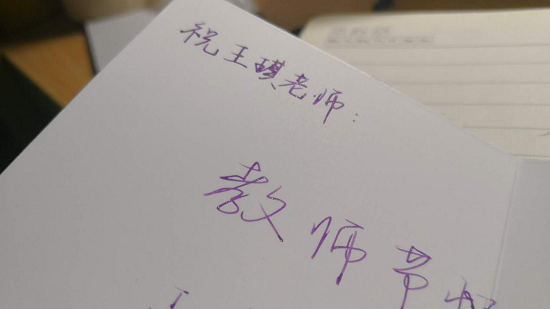 祝王琪老师：
教师节